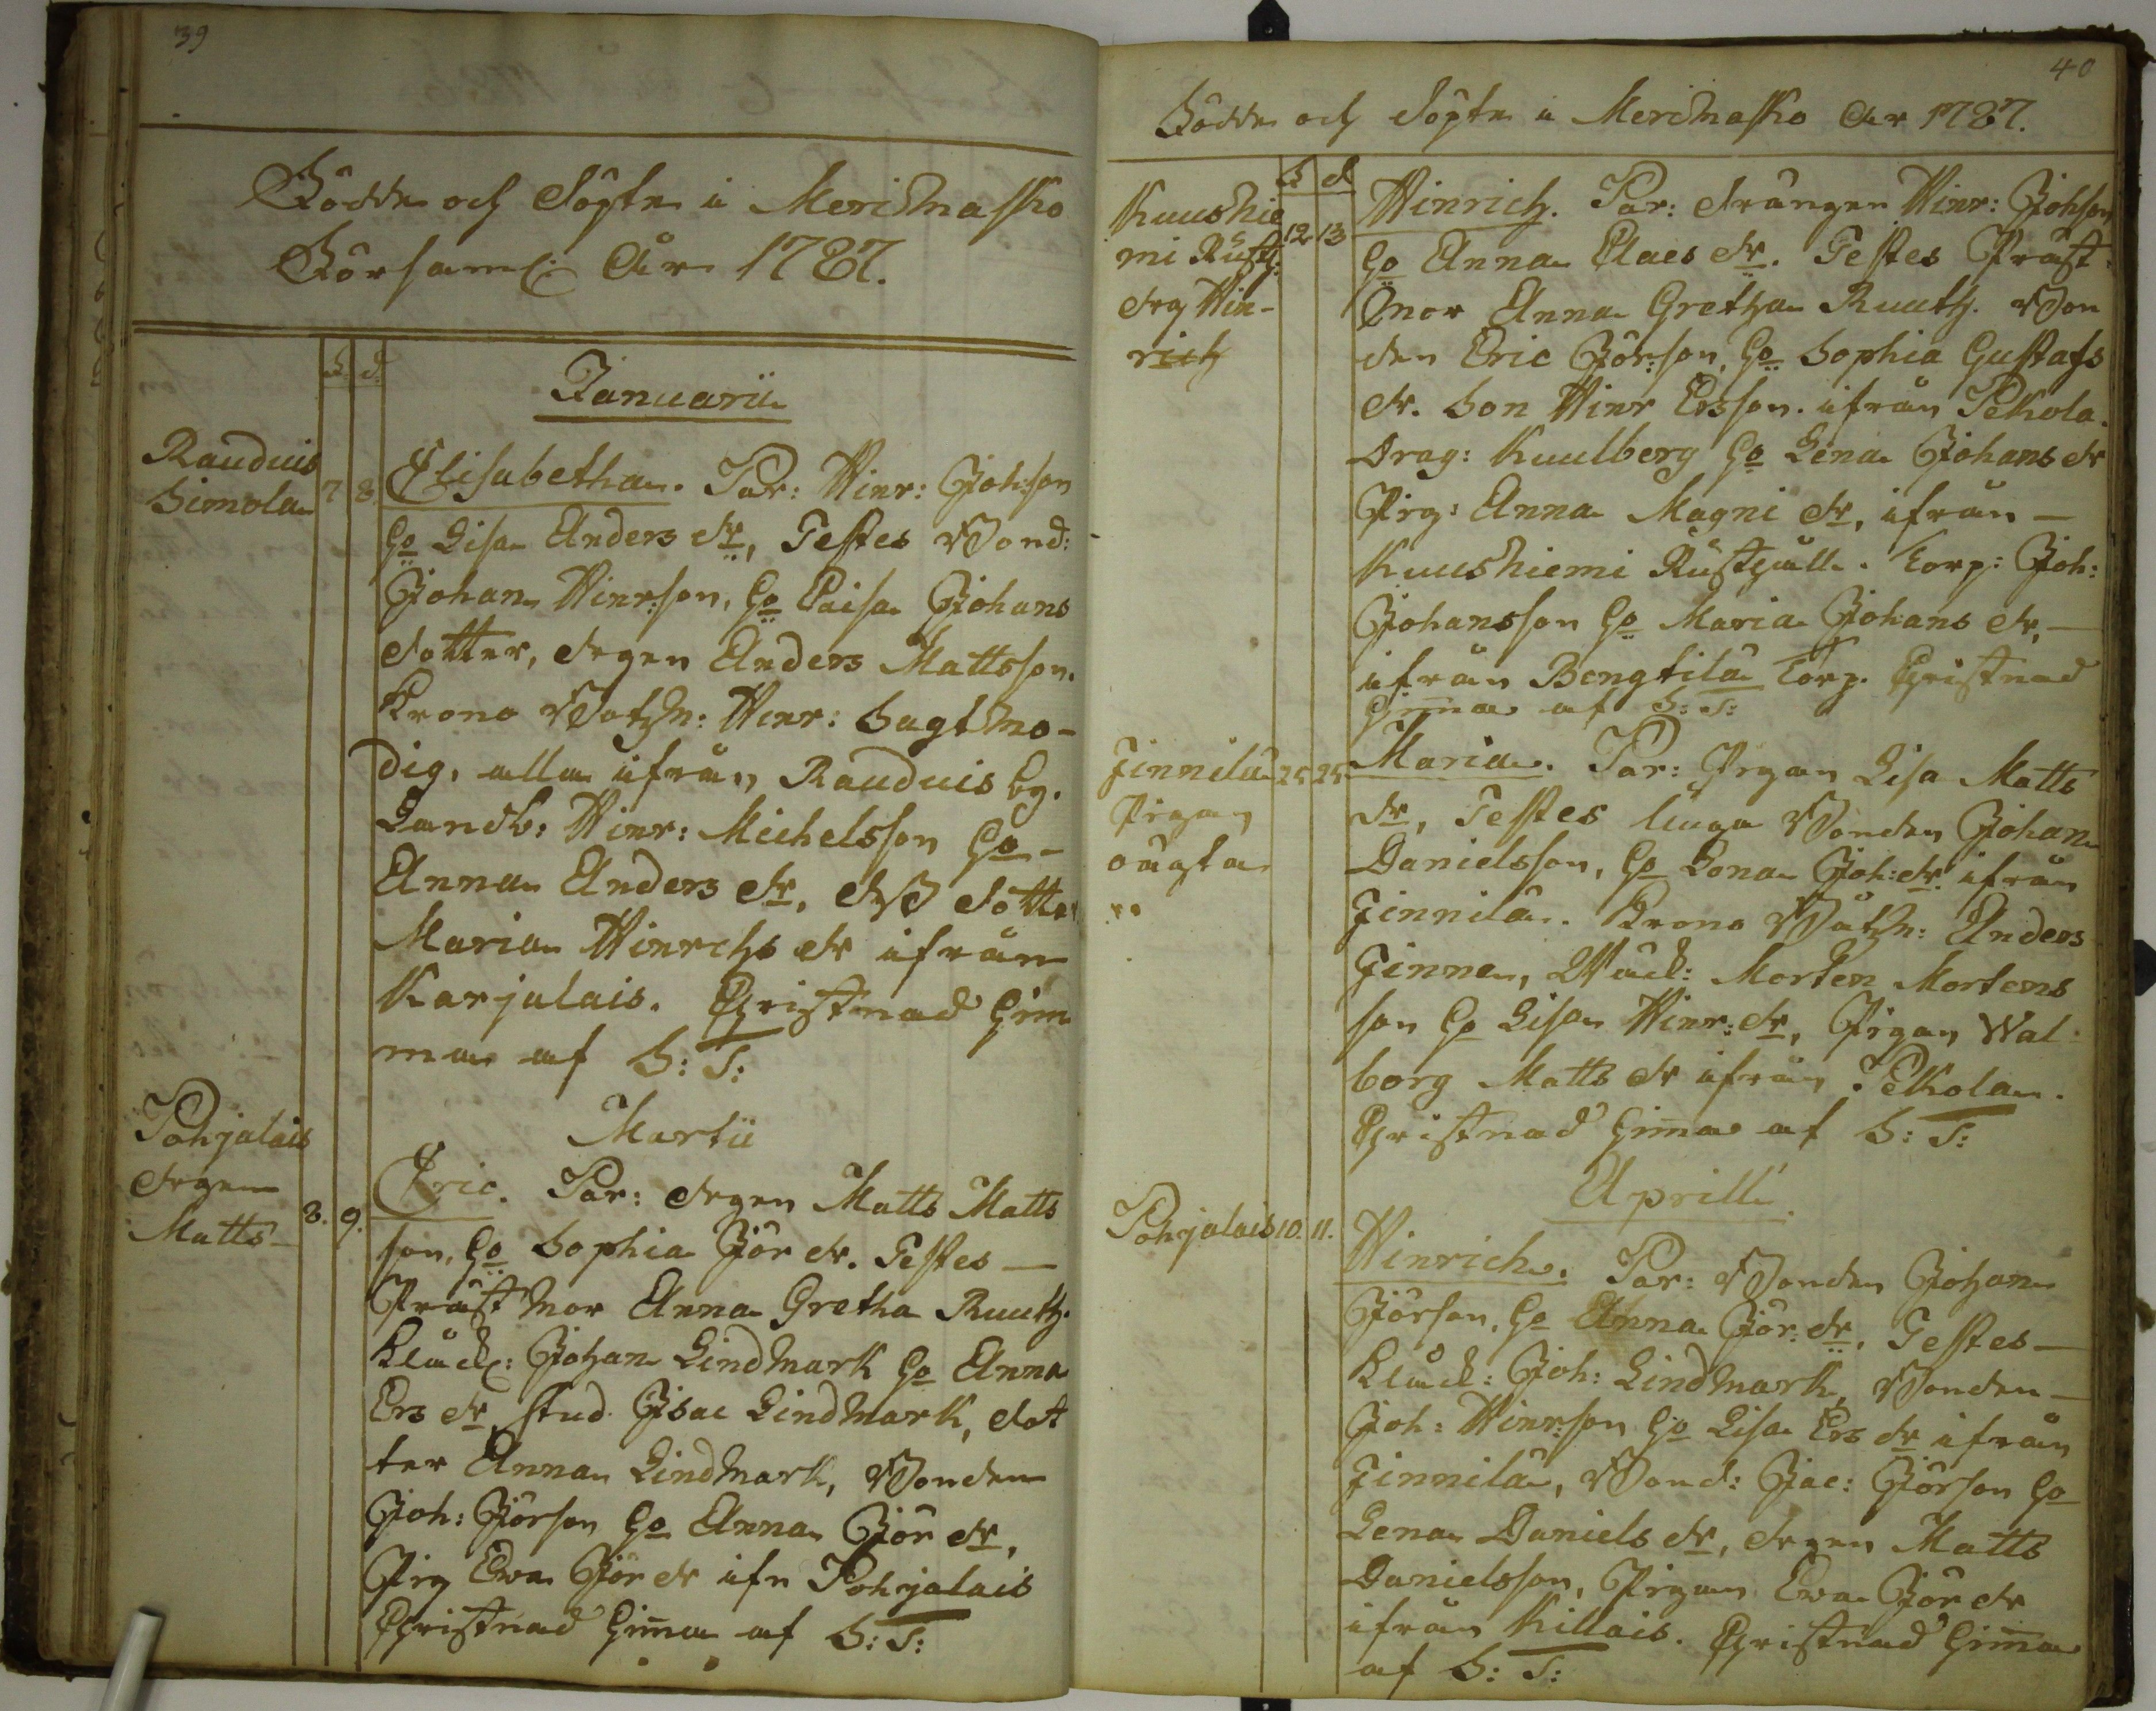 39
Födde och Döpte i Merimasko
Församl: År 1787.
f. d.
Januarii
Rauduis
Simola
7 8
Elisabetha. Par: Hinr: Johsson
Ho Lisa Anders dr, Testes Bond:
Johan Hinrsson, Ho Caisa Johans
dotter, drgen Anders Mattsson.
Krono Båtsn: Hinr: Sagtmo-
dig, alla ifrån Rauduis by.
Landb: Hinr: Michelsson Ho
Anna Anders dr, dotter
Maria Hinrichs dr ifrån
Karjalais. Christnad hem-
ma af S: T:
Martii
Pohjalais
drgen
Matts
8. 9.
Eric. Par: drgen Matts Matts
son, Ho Sophia Jör dr. Testes
Präst Mor Anna Gretha Ruuth.
Klock: Johan Lindmark Ho Anna
Ers dr, Stud. Isac Lindmark, dot
ter Anna Lindmark, Bonden
Joh: Jörson Ho Anna Jör dr,
Pig Ewa Jör dr ifn Pohjalais
Christnad hemma af S: T:
40
Födde och Döpte i Merimasko År 1787.
f d
Kuushie
mi Rusth:
drg Hin-
rich
12 13
Hinrich. Par: drängen Hinr: Johson
Ho Anna Claes dr. Testes Präst
Mor Anna Gretha Ruuth. Bon
den Eric Jörson, Ho Sophia Gustafs
dr. Son Hinr Ersson. ifrån Pekola.
Drag: Kuulberg Ho Lena Johans dr
Pig: Anna Magni dr, ifrån
Kuushiemi Rusthåll. Torp: Joh:
Johansson Ho Maria Johans dr,
ifrån Bengtilä Torp. Christnad
hemma af S: T:
Finnilä
Pigan
oägta
25 25
Maria. Par: Pigan Lisa Matts
dr, Testes Unga Bonden Johan
Danielsson, Ho Lena Joh: dr ifrån
Finnilä. Krono Båtsn: Anders
Finne, Morten Mortens
son Ho Lisa Hinr: dr, Pigan Wal
borg Matts dr ifrån Pekola.
Christnad hemma af S: T:
Aprill
Pohjalais 10. 11.
Hinrich. Par: Bonden Johan
Jörson, Ho Anna Jör: dr, Testes
Klock: Joh: Lindmark, Bonden
Joh: Hinrson Ho Lisa Ers dr ifrån
Finnilä, Bond: Jac: Jörson Ho
Lena Daniels dr, drgen Matts
Danielsson, Pigan Ewa Jör dr
ifrån Killais. Christnad hemma
af S: T: